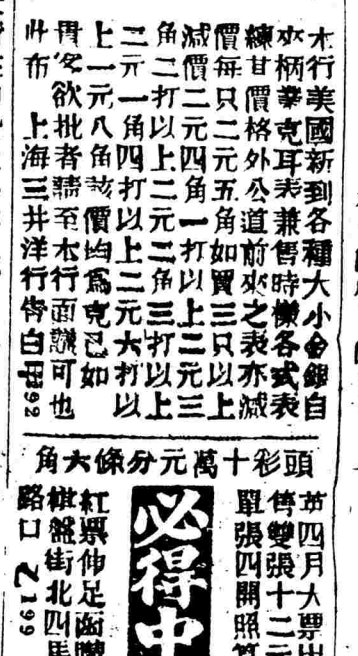 本行美國新到各種大小金銀白
夾柄華克耳表兼售時樣各式表
練甘價格外公道前來之表亦減
價每只二元五角如買三只以上
減價二元四角一打以上二元三
角二打以上二元二角三打以上
二元一角四打以上二元六打以
上一元八角該價均為克己如
貴客欲批者請至本行面議可也
此布 上海三井洋行告白 甲392
頭彩十萬元分條六角
英四月大票出
售雙張十二元
單張四開照算
必得中
紅票伸足
棋盤街北四馬
路口 乙199